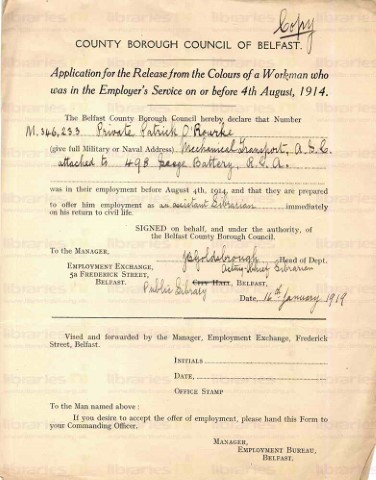 Copy
COUNTY BOROUGH COUNCIL OF BELFAST.
Application for the Release from the Colours of a Workman who
was in the Employer's Service on or before 4th August, 1914.
The Belfast County Borough Council hereby declare that Number
M.346,233 Private Patrick O'Rourke
(give full Military or Naval Address) Mechanical Transport, A.S.C.
attached to 498 Seige Battery, R.G.A.
was in their employment before August 4th, 1914, and that they are prepared
to offer him employment as an assistant Librarian immediately
on his return to civil life.
SIGNED on behalf, and under the authority, of
the Belfast County Borough Council.
To the MANAGER,
EMPLOYMENT EXCHANGE,
5a FREDERICK STREET,
BELFAST.
JB Goldsbrough Head of Dept.
Acting Chief Librarian
Public Library CITY HALL, BELFAST,
Date, 16th January 1919
Vised and forwarded by the Manager, Employment Exchange, Frederick
Street, Belfast.
INITIALS
DATE,
OFFICE STAMP
To the Man named above:
If you desire to accept the offer of employment, please hand this Form to
your Commanding Officer.
MANAGER,
EMPLOYMENT BUREAU,
BELFAST.
libraries NI